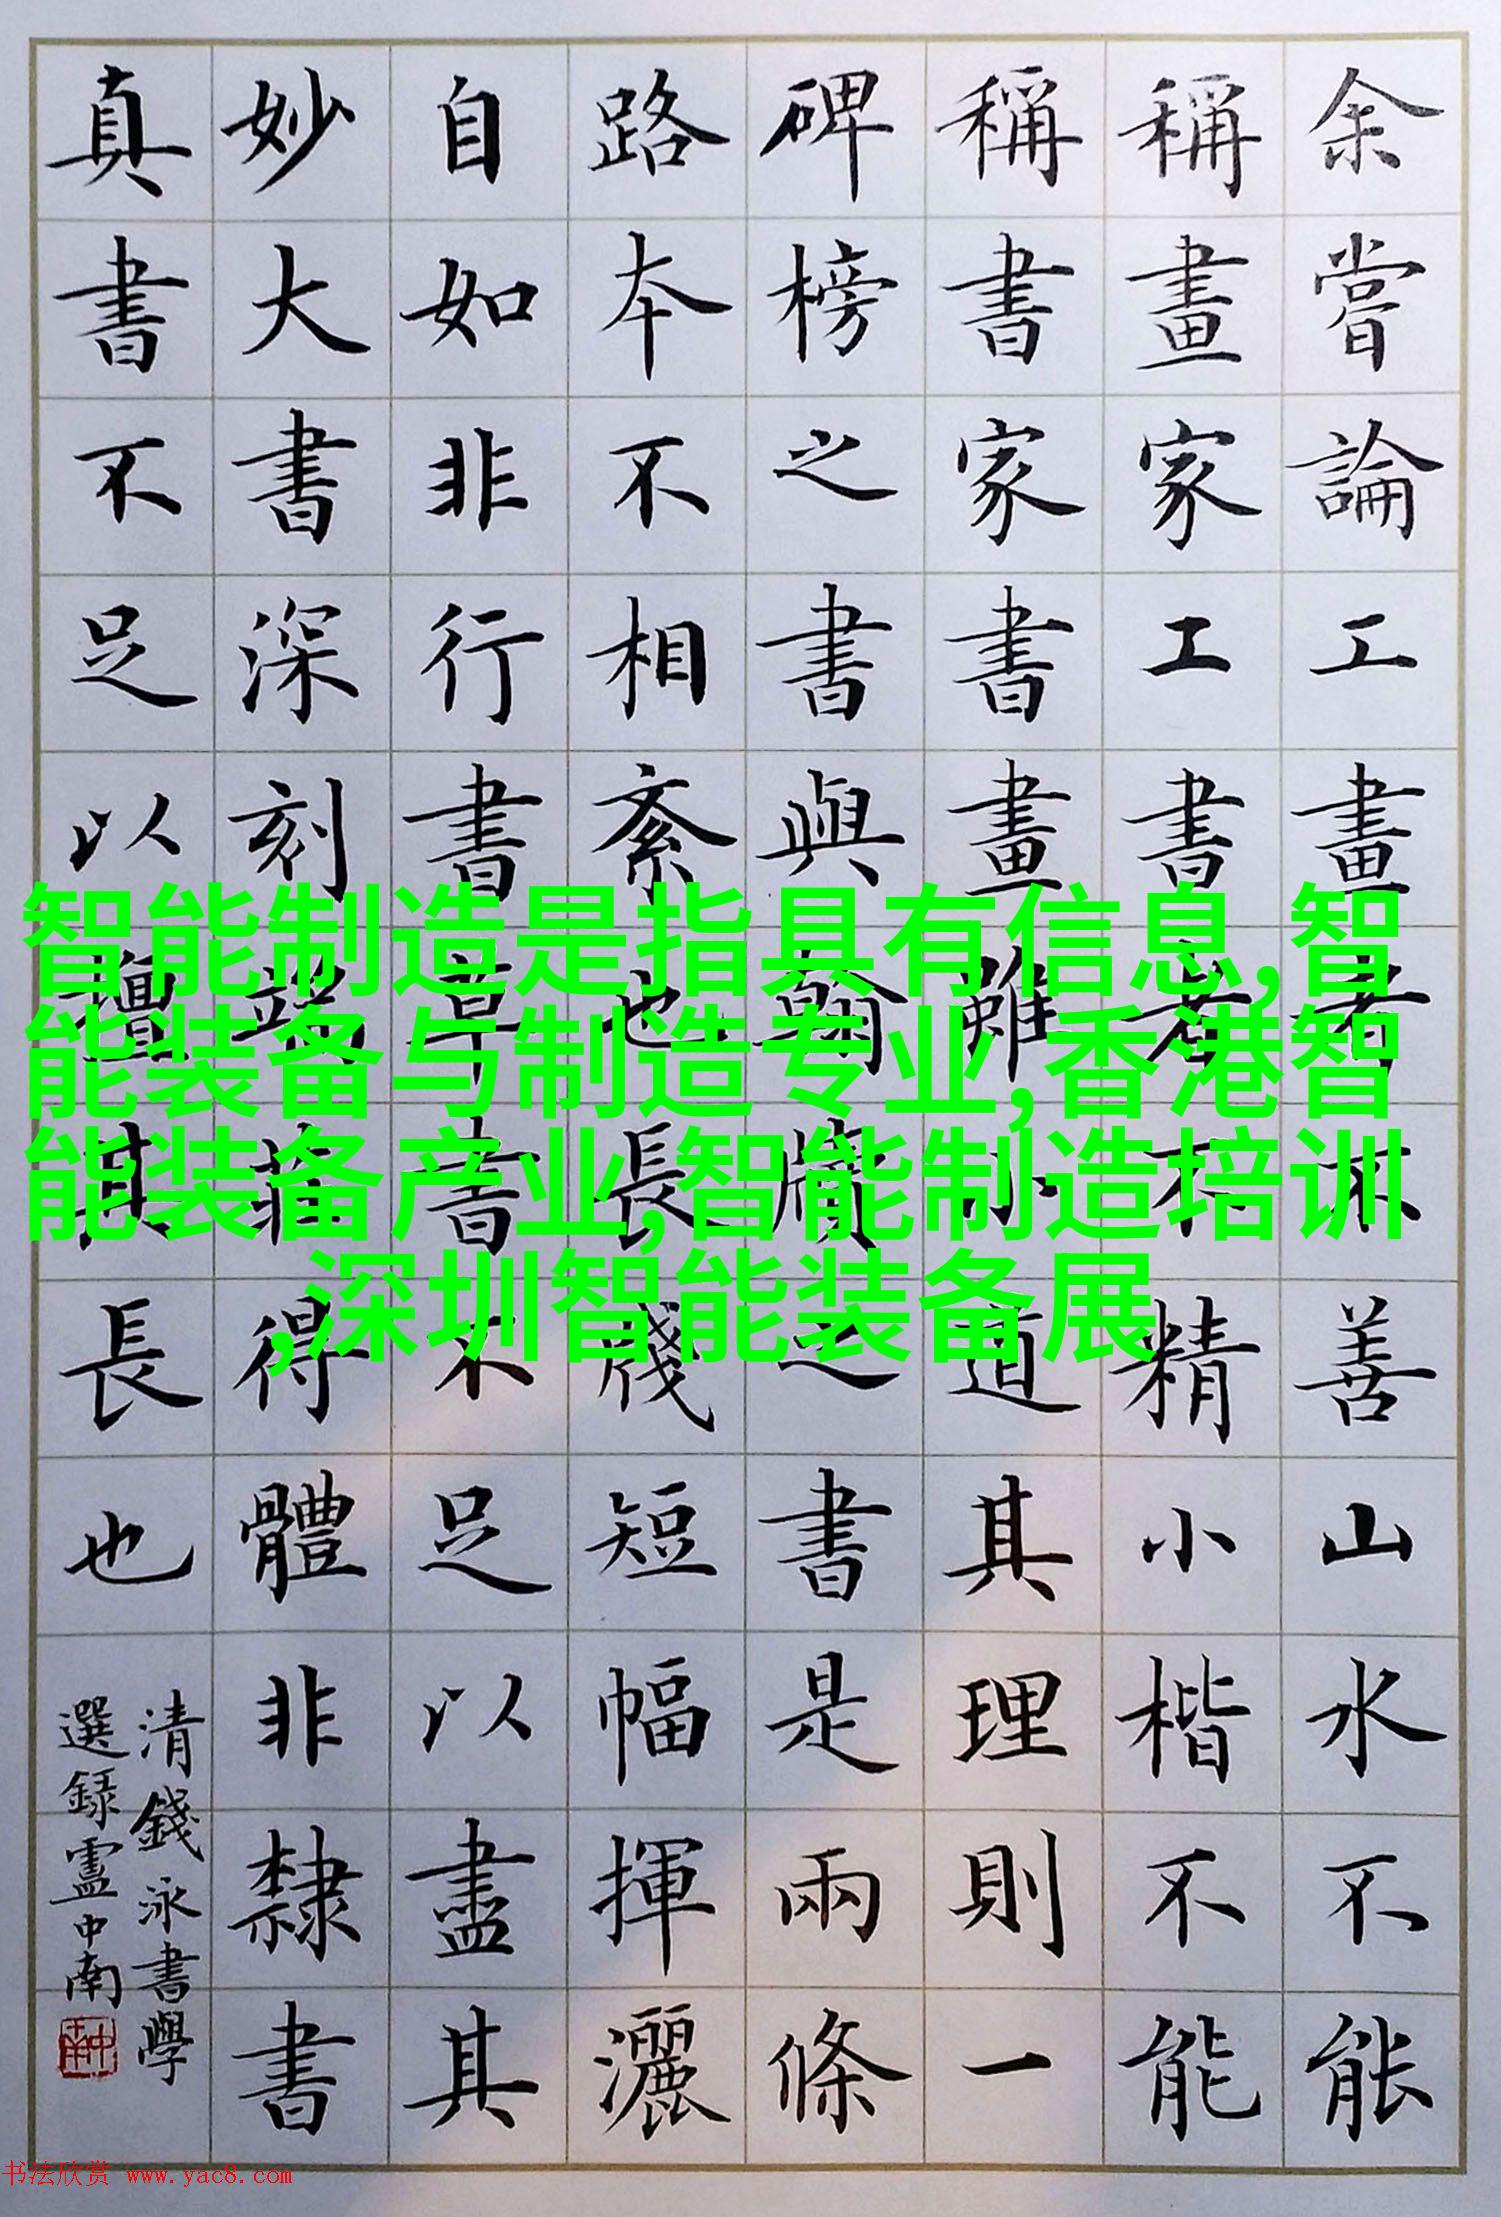 余嘗論工畫者不善山水不能
稱畫家工書者不精小楷不能
稱書家書畫雖小道其理則一
碑榜之書與翰牘之書是兩條
路本不相紊也長牋短幅揮灑
自如非行書草書不足以盡其
妙大書深刻端莊得體非隸書
真書不足以擅其長也
清錢泳書學
選錄盧中南
智能制造是指具有信息,智
能装备与制造专业,香港智
能装备产业,智能制造培训
,深圳智能装备展
书法欣赏 www.yac8.com